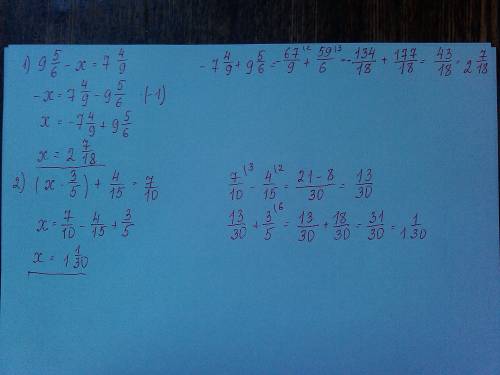 1) 9 5/6 - x = 7 4/9
-x = 7 4/9 - 9 5/6 :(-1)
x = -7 4/9 + 9 5/6
x = 2 7/18
-7 4/9 + 9 5/6 = -67/9 (2 + 59/6 (3 = -134/18 + 177/18 = 43/18 = 2 7/18
2) (x - 3/5) + 4/15 = 7/10
x = 7/10 - 4/15 + 3/5
x = 1 1/30
7/10 (3 - 4/15 (2 = 21-8/30 = 13/30
13/30 + 3/5 (6 = 13/30 + 18/30 = 31/30 = 1 1/30